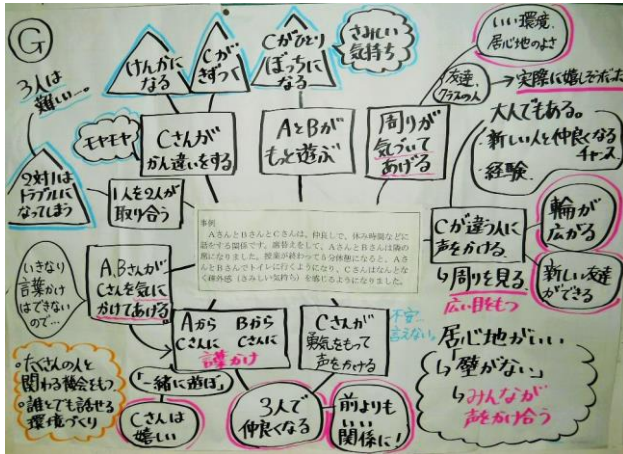 G
3人は
難しい…。
けんかに
なる
Cが
きずつく
Cがひとり
ぼっちに
なる
さみしい
気持ち
いい環境、
居心地のよさ
友達、
クラスの人
実際に嬉しそうだった
モヤモヤ
Cさんが
かん違いをする
AとBが
もっと遊ぶ
周りが
気づいて
あげる
大人でもある。
・新しい人と仲良くなる
チャンス
・経験
2対1は
トラブルに
なってしまう
1人を2人が
取り合う
事例
AさんとBさんとCさんは、仲良しで、休み時間などに
話をする関係です。席替えをして、AさんとBさんは隣の
席になりました。授業が終わって5分休憩になると、Aさ
んとBさんでトイレに行くようになり、Cさんはなんとな
く疎外感(さみしい気持ち)を感じるようになりました。
Cが違う人に
声をかける
↳周りを見る。
広い目をもつ
輪が
広がる
新しい友達
ができる
いきなり
言葉かけ
はできない
ので…
A,Bさんが
Cさんを気に
かけてあげる
Aから
Cさんに
Bから
Cさんに
言葉かけ
Cさんが
勇気をもって
声をかける
不安…
言えない。
居心地がいい
↳「壁がない」
↳みんなが
声をかけ合う
・たくさんの人と
関わる機会をもつ
・誰とでも話せる
環境づくり
「一緒に遊ぼ」
Cさんは
嬉しい
3人で
仲良くなる
前よりも
いい
関係に!